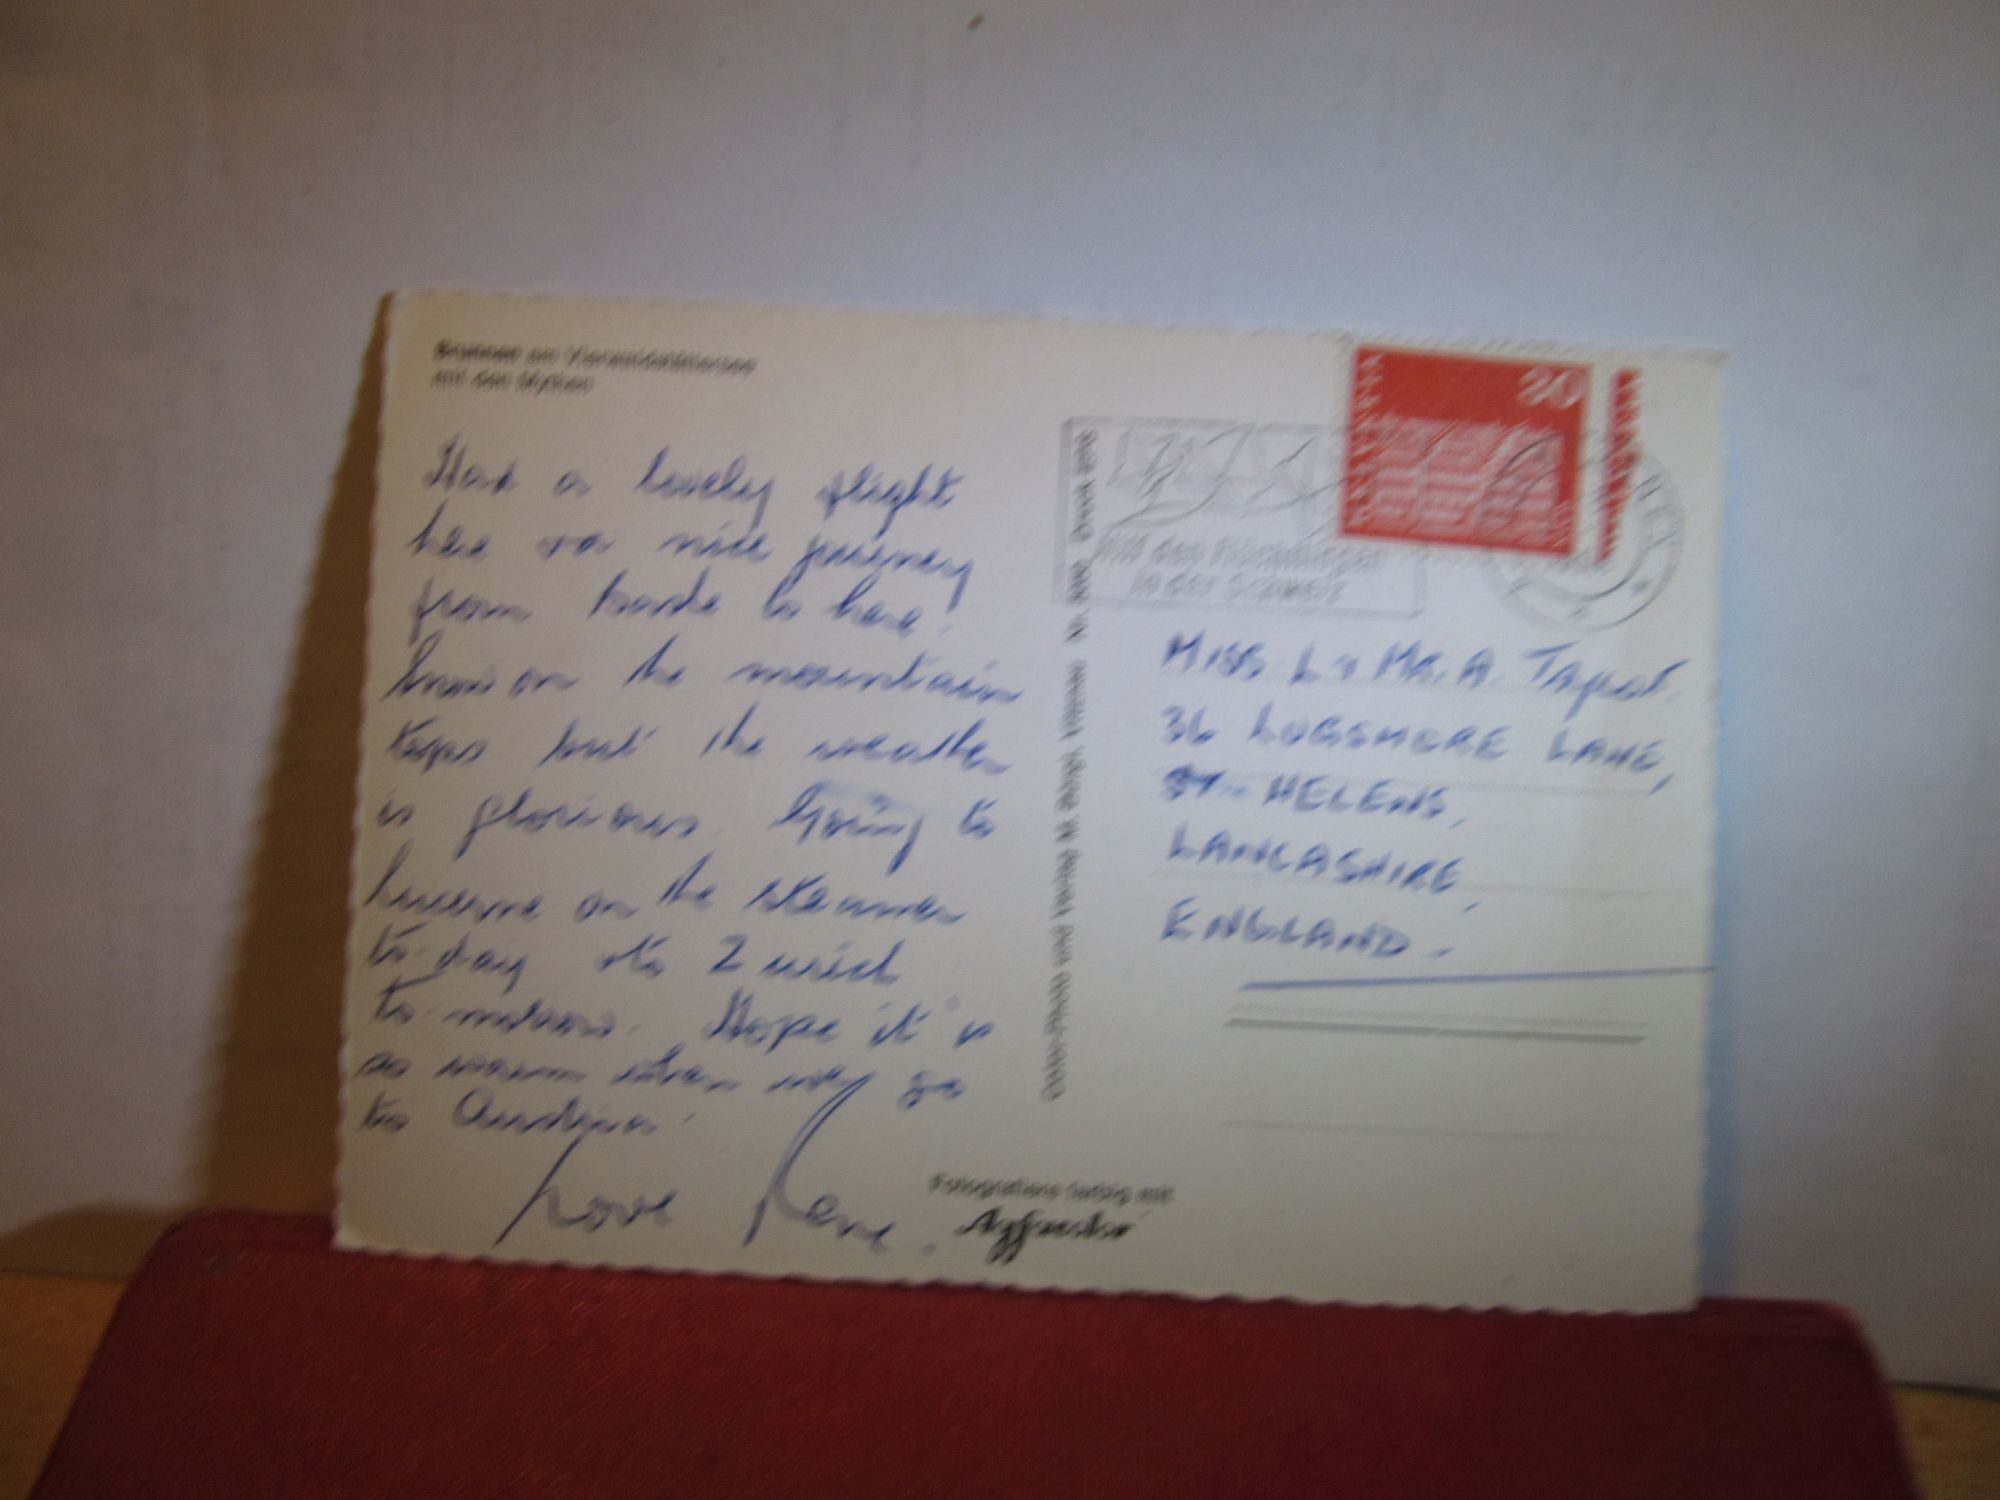 Brunnen am Vierwaldstättersee
mit den Mythen
Had a lovely flight
here + a nice journey
from Basle to here.
Snow on the mountain
tops but the weather
is glorious. Going to
Lucerne on the steamer
to-day + to Zurich
to-morrow. Hope it is
as warm when we go
to Austria.
Love Rene.
Hilf den Flüchtlingen
in der Schweiz
30
HELVETIA
MISS L + MR. A.
36 LUGSMORE LANE,
ST. HELENS,
LANCASHIRE,
ENGLAND -
Fotografiere farbig mit
Agfacolor